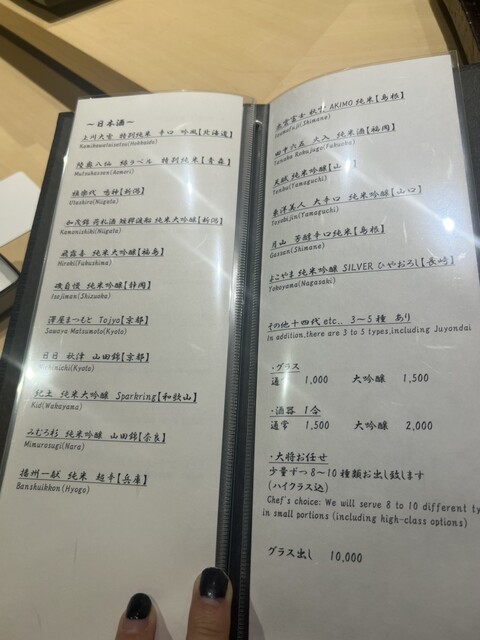 〜日本酒〜
上川大雪 特別純米 辛口 吟風【北海道】
Kamikawataisetsu(Hokkaido)
陸奥八仙 緑ラベル 特別純米【青森】
Mutsuhassen(Aomori)
雅楽代 鳴神【新潟】
Utashiro(Niigata)
加茂錦 荷札酒 純米大吟醸【新潟】
Kamonishiki(Niigata)
飛露喜 純米大吟醸【福島】
Hiroki(Fukushima)
磯自慢 純米吟醸【静岡】
Isojiman(Shizuoka)
澤屋まつもと Tojyo【京都】
Sawaya Matsumoto(Kyoto)
日日 秋津 山田錦【京都】
nichi(Kyoto)
紀土 純米大吟醸 Sparkring【和歌山】
Kid(Wakayama)
みむろ杉 純米吟醸 山田錦【奈良】
Mimurosugi(Nara)
播州一献 純米 超辛【兵庫】
Banshuikkon(Hyogo)
出雲富士 秋 AKIMO 純米【島根】
Izumofuji(Shimane)
田中六五 六入 純米酒【福岡】
Tanaka Rokujugo(Fukuoka)
雁木 純米吟醸【山
(Yamaguchi)
東洋美人 大辛口 純米吟醸【山口】
Toyobijin(Yamaguchi)
月山 芳醇辛口純米【島根】
Gassan(Shimane)
よこやま 純米吟醸 SILVER ひやおろし【長崎】
Yokoyama(Nagasaki)
その他十四代 etc.. 3〜5種 あり
In addition,there are 3 to 5 types,including Juyondai
・グラス
通常 1,000 大吟醸 1,500
・酒器 1合
通常 1,500 大吟醸 2,000
・大将お任せ
少量ずつ8〜10種類お出し致します
(ハイクラス込)
Chef's choice: We will serve 8 to 10 different ty
in small portions (including high-class options)
グラス出し 10,000